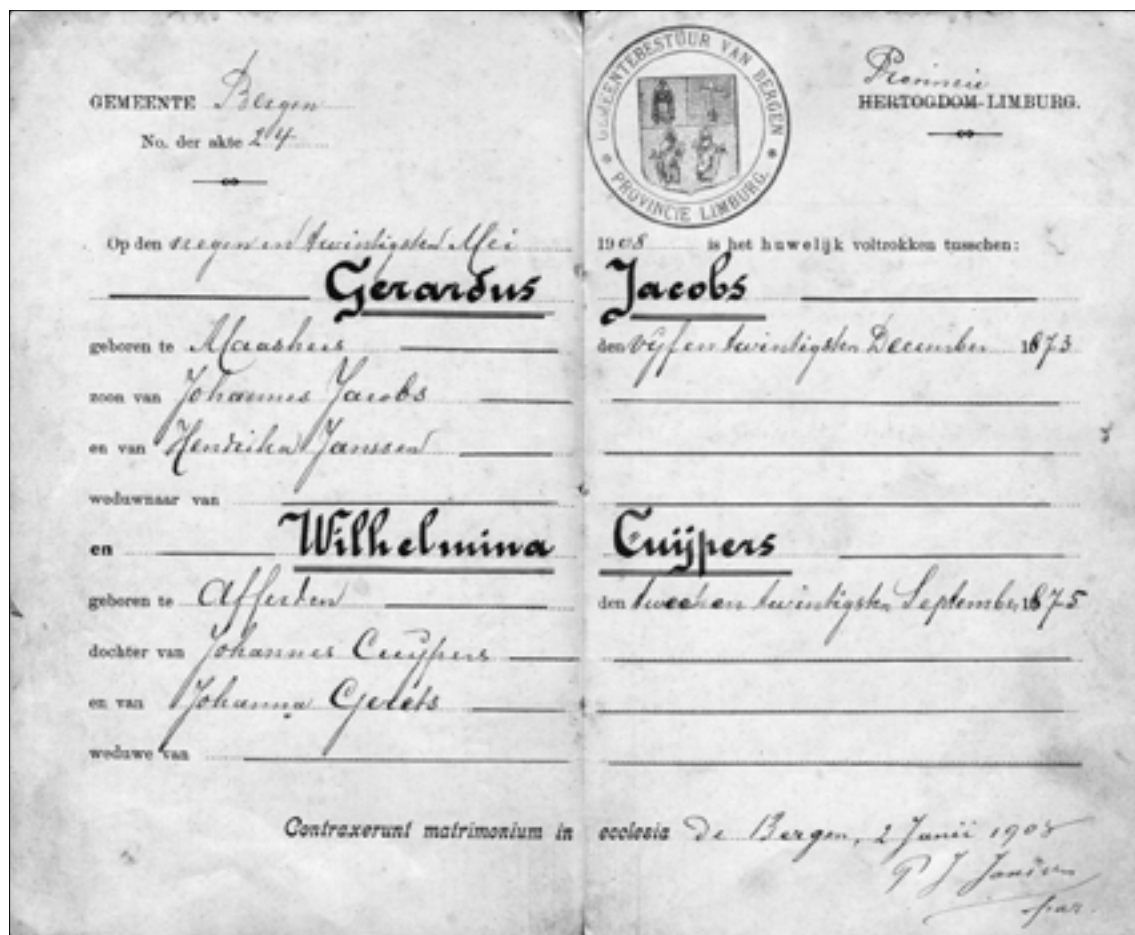 GEMEENTE Bergen
No. der akte 24
GEMEENTEBESTUUR VAN BERGEN * PROVINCIE LIMBURG. *
Provincie
HERTOGDOM LIMBURG.
Op den negen en twintigsten Mei 1908 is het huwelijk voltrokken tusschen:
Gerardus Jacobs
geboren te Maashees den vijf en twintigsten December 1873
zoon van Johannes Jacobs
en van Hendrika Janssen
weduwnaar van
en Wilhelmina Cuijpers
geboren te Afferden den twee en twintigsten September 1875
dochter van Johannes Cuijpers
en van Johanna Geerts
weduwe van
Contraxerunt matrimonium in ecclesia de Bergen, 2 Junii 1908
P J